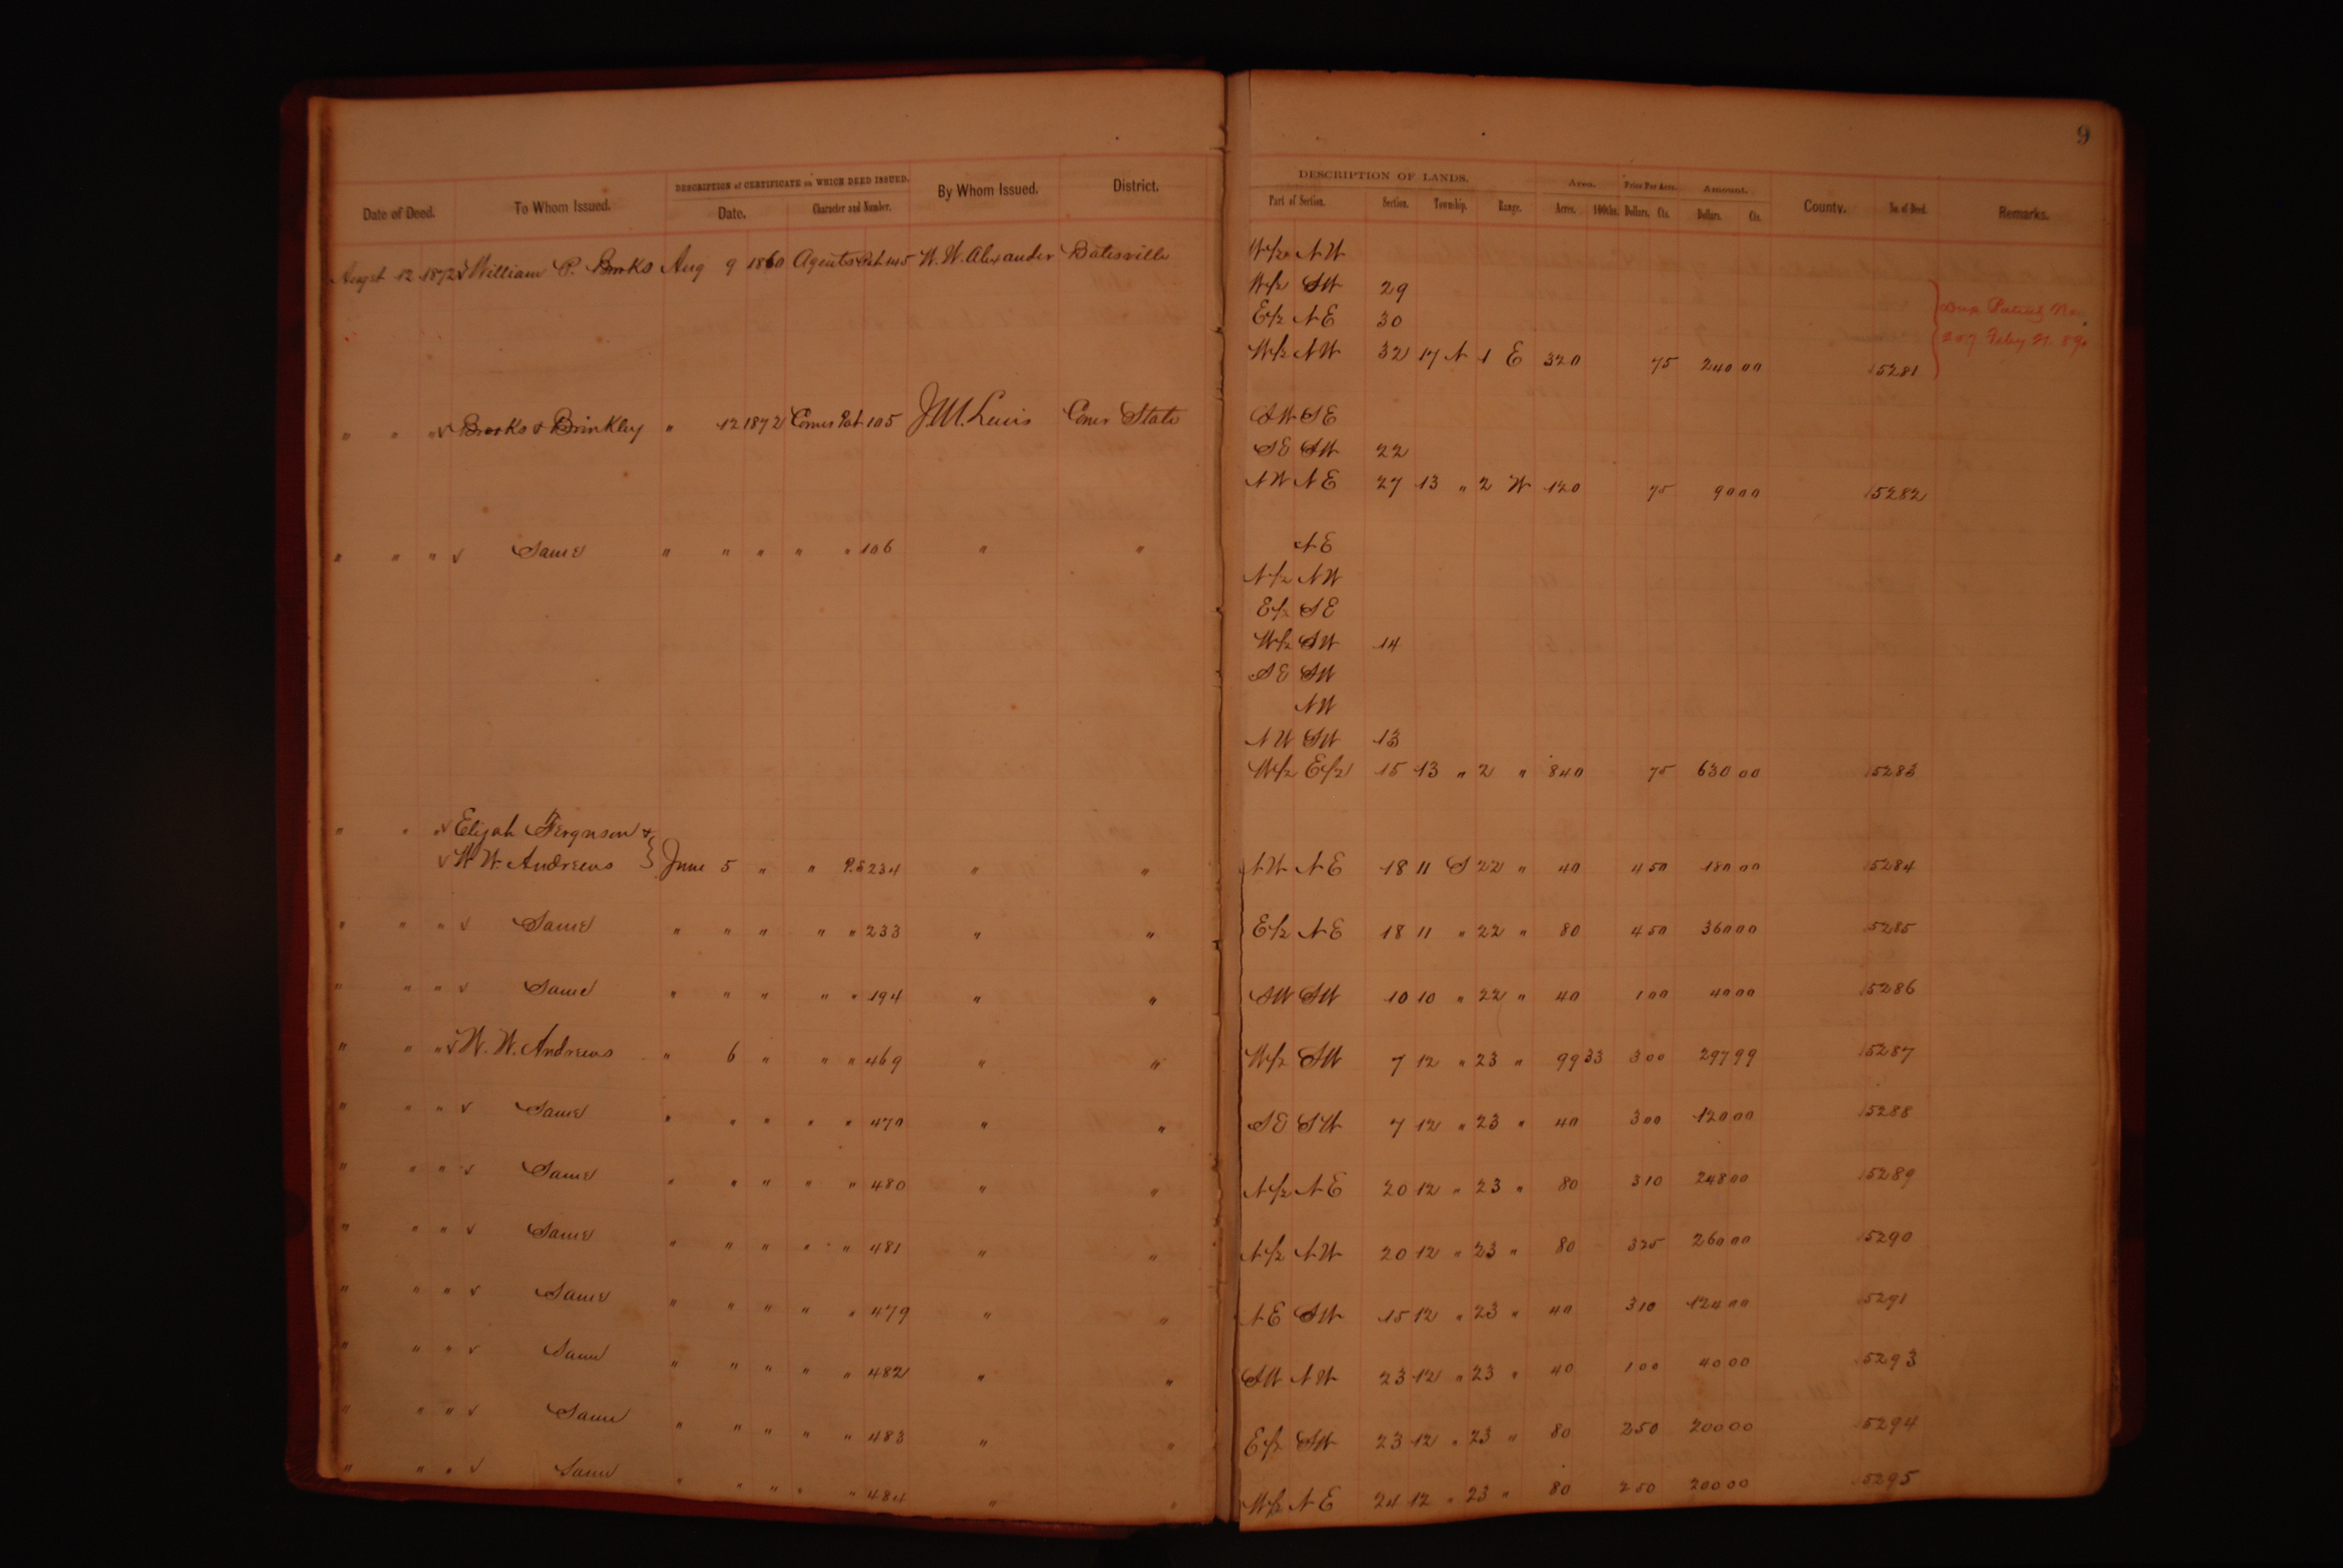 9
Date of Deed. To Whom Issued. DESCRIPTION of CERTIFICATE on WHICH DEED ISSUED. By Whom Issued. District. DESCRIPTION OF LANDS. Area. Price Per Acre. Amount. County. No. of Deed. Remarks.
Date. Character and Number. Part of Section. Section. Township. Range. Acres. 100ths. Dollars. Cts. Dollars. Cts.
Augst 12 1872 √ William P. Brooks Aug 9 1860 Agents Pat 145 W. W. Alexander Batesville W/2 NW
W/2 SW 29
E/2 NE 30
W/2 NW 32 17 N 1 E 320 75 240 00 15281
Dup Patent No.
207 Feby 21. 89.
" " " √ Brooks & Brinkley " 12 1872 Comrs Pat 105 J. M. Lewis Comr State SW SE
SE SW 22
NW NE 27 13 " 2 W 120 75 90 00 15282
" " " √ Same " " " " " 106 " " NE
N/2 NW
E/2 SE
W/2 SW 14
SE SW
NW
NW SW 13
W/2 E/2 15 13 " 2 " 840 75 630 00 15283
" " " √ Elijah Ferguson &
√ W. W. Andrews } June 5 " " P.S 234 " " NW NE 18 11 S 22 " 40 4 50 180 00 15284
" " " √ Same " " " " " 233 " " E/2 NE 18 11 " 22 " 80 4 50 360 00 15285
" " " √ Same " " " " " 194 " " SW SW 10 10 " 22 " 40 1 00 40 00 15286
" " " √ W. W. Andrews " 6 " " " 469 " " W/2 SW 7 12 " 23 " 99 33 3 00 297 99 15287
" " " √ Same " " " " " 470 " " SE SW 7 12 " 23 " 40 3 00 120 00 15288
" " " √ Same " " " " " 480 " " N/2 NE 20 12 " 23 " 80 3 10 248 00 15289
" " " √ Same " " " " " 481 " " N/2 NW 20 12 " 23 " 80 3 25 260 00 15290
" " " √ Same " " " " " 479 " " NE SW 15 12 " 23 " 40 3 10 124 00 15291
" " " √ Same " " " " " 482 " " SW NW 23 12 " 23 " 40 1 00 40 00 15293
" " " √ Same " " " " " 483 " " E/2 SW 23 12 " 23 " 80 2 50 200 00 15294
" " " √ Same " " " " " 484 " " W/2 NE 24 12 " 23 " 80 2 50 200 00 15295